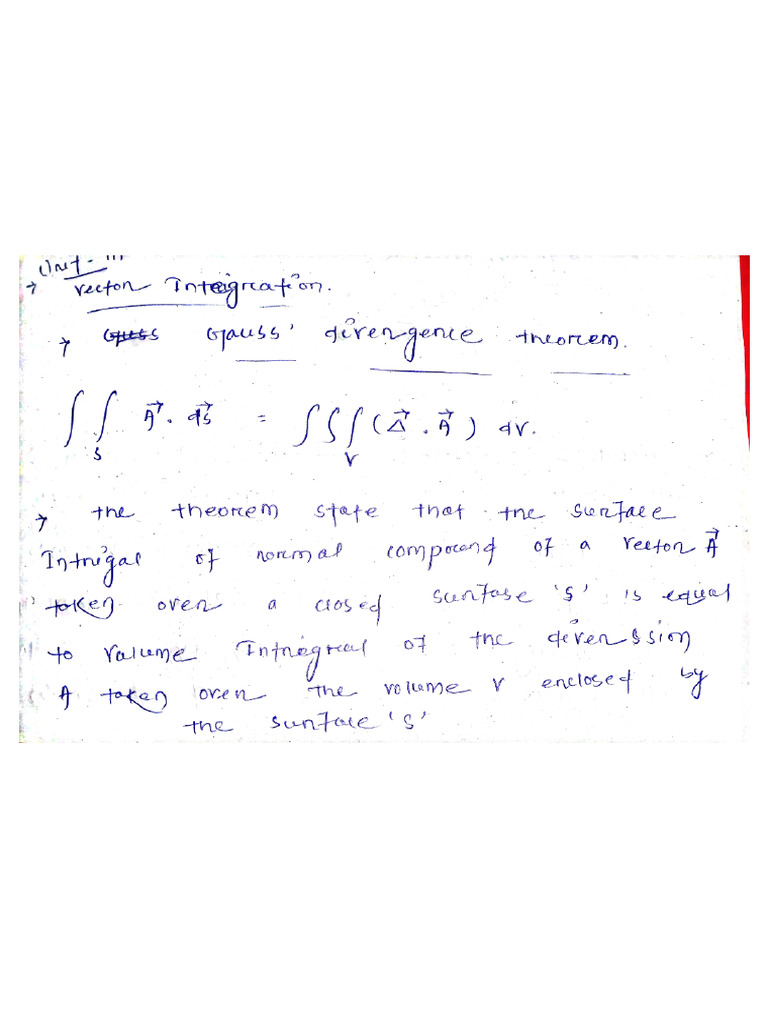 Unit - III
→ vector Integration.
→ Guess Gauss' divergence theorem.
∫∫ₛ A⃗ . ds⃗ = ∫∫∫ᵥ (Δ⃗ . A⃗) dv.
→ the theorem state that the surface
Intrigal of normal compocend of a vector A⃗
taken over a closed surfase 's' is equal
to valume Intrigral of the diverssion
A taken over the volume v enclosed by
the surface 's'